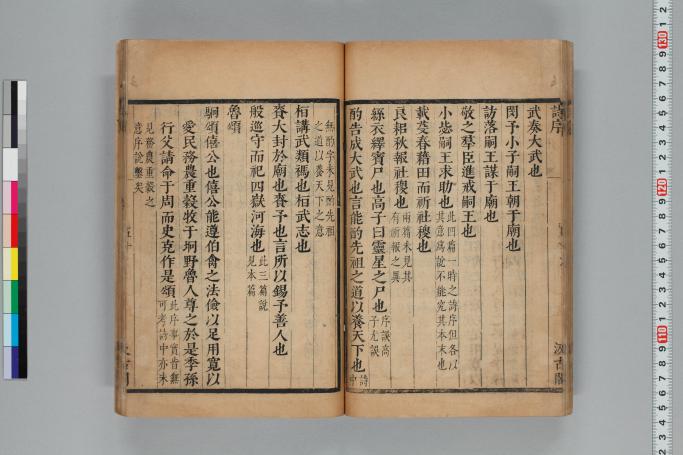 詩序
武奏大武也
閔予小子嗣王朝于廟也
訪落嗣王謀于廟也
敬之羣臣進戒嗣王也
小毖嗣王求助也此四篇一時之詩序但各以其意爲說不能究其本末也
載芟春藉田而祈社稷也
良耜秋報社稷也兩篇未見其有祈報之異
絲衣繹賓尸也高子曰靈星之尸也序誤高子尤誤
酌告成大武也言能酌先祖之道以養天下也詩中
無酌字未見酌先祖之道以養天下之意
桓講武類禡也桓武志也
賚大封於廟也賚予也言所以錫予善人也
般巡守而祀四嶽河海也此三篇說見本篇
魯頌
駉頌僖公也僖公能遵伯禽之法儉以足用寬以
愛民務農重穀牧于坰野魯人尊之於是季孫
行父請命于周而史克作是頌此序事實皆無可考詩中亦未
見務農重穀之意序說鑿矣
汲古閣
110
120
130